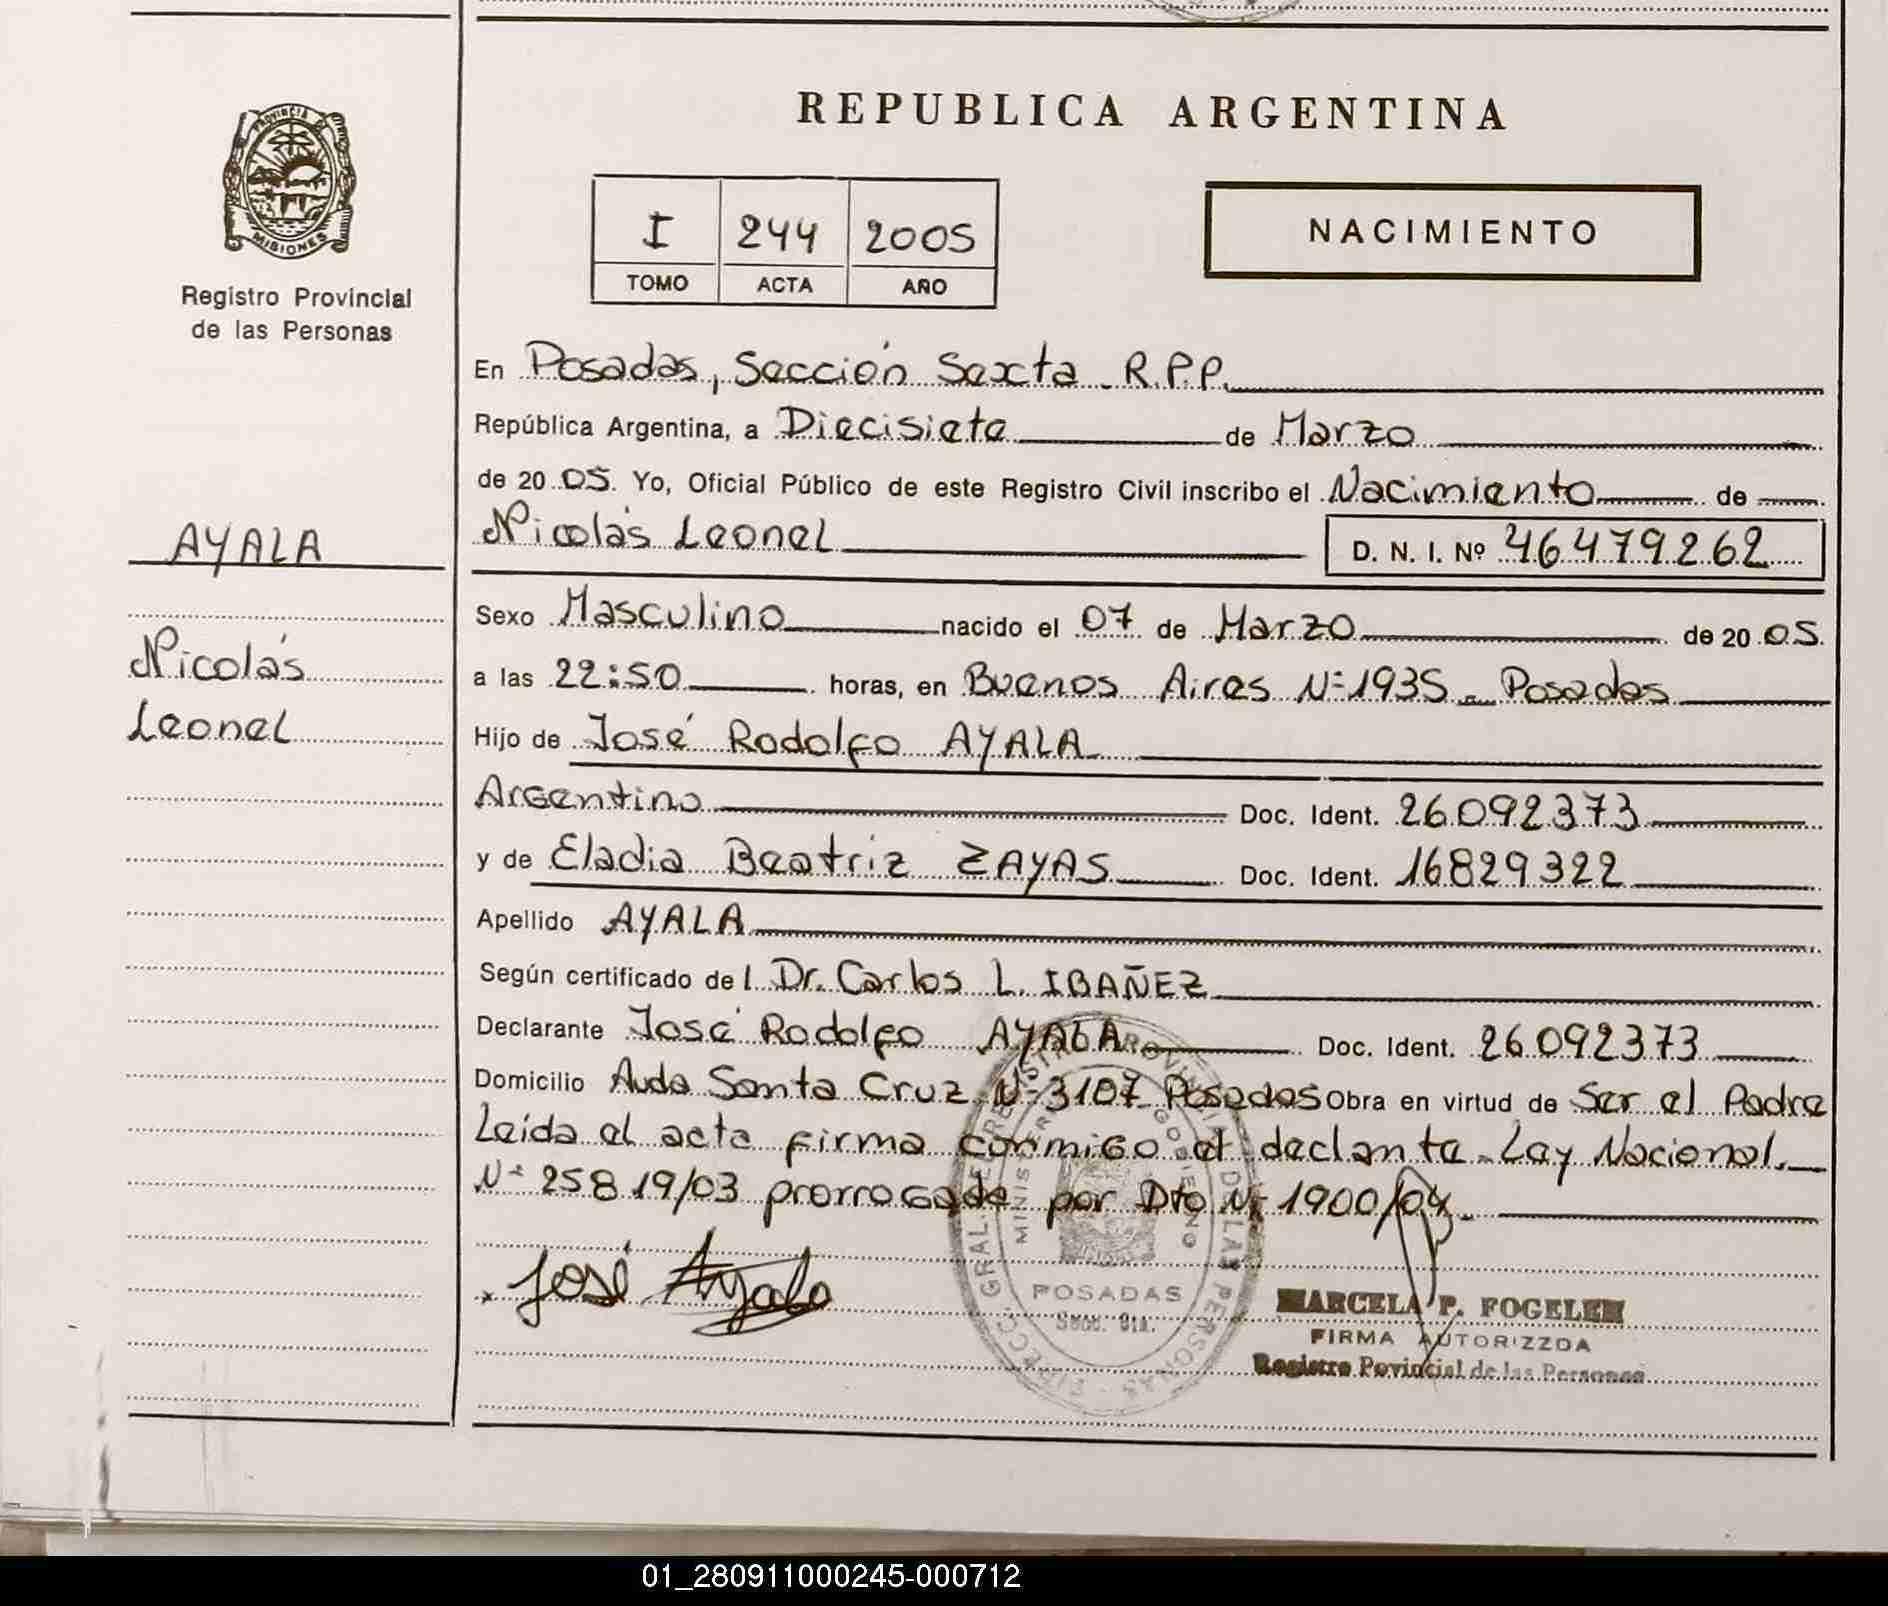 REPUBLICA ARGENTINA
PROVINCIA DE
MISIONES
Registro Provincial
de las Personas
I 244 2005
TOMO ACTA AÑO
NACIMIENTO
En Posadas, Sección Sexta R.P.P.
República Argentina, a Diecisiete de Marzo
de 20 05. Yo, Oficial Público de este Registro Civil inscribo el Nacimiento de
Nicolás Leonel D. N. I. Nº 46479262
AYALA
Nicolás
Leonel
Sexo Masculino nacido el 07 de Marzo de 20 05.
a las 22:50 horas, en Buenos Aires Nº 1935 - Posadas
Hijo de José Rodolfo AYALA
Argentino Doc. Ident. 26092373
y de Eladia Beatriz ZAYAS Doc. Ident. 16829322
Apellido AYALA
Según certificado de l Dr. Carlos L. IBAÑEZ
Declarante José Rodolfo AYALA Doc. Ident. 26092373
Domicilio Avda Santa Cruz Nº 3107 Posadas Obra en virtud de Ser el Padre
Leída el acta firma conmigo el declante. Ley Nacional
Nº 25819/03 prorrogada por Dto Nº 1900/04.
José Ayala
POSADAS
MARCELA P. FOGELER
FIRMA AUTORIZZDA
Registro Povincial de las Personas
01_280911000245-000712